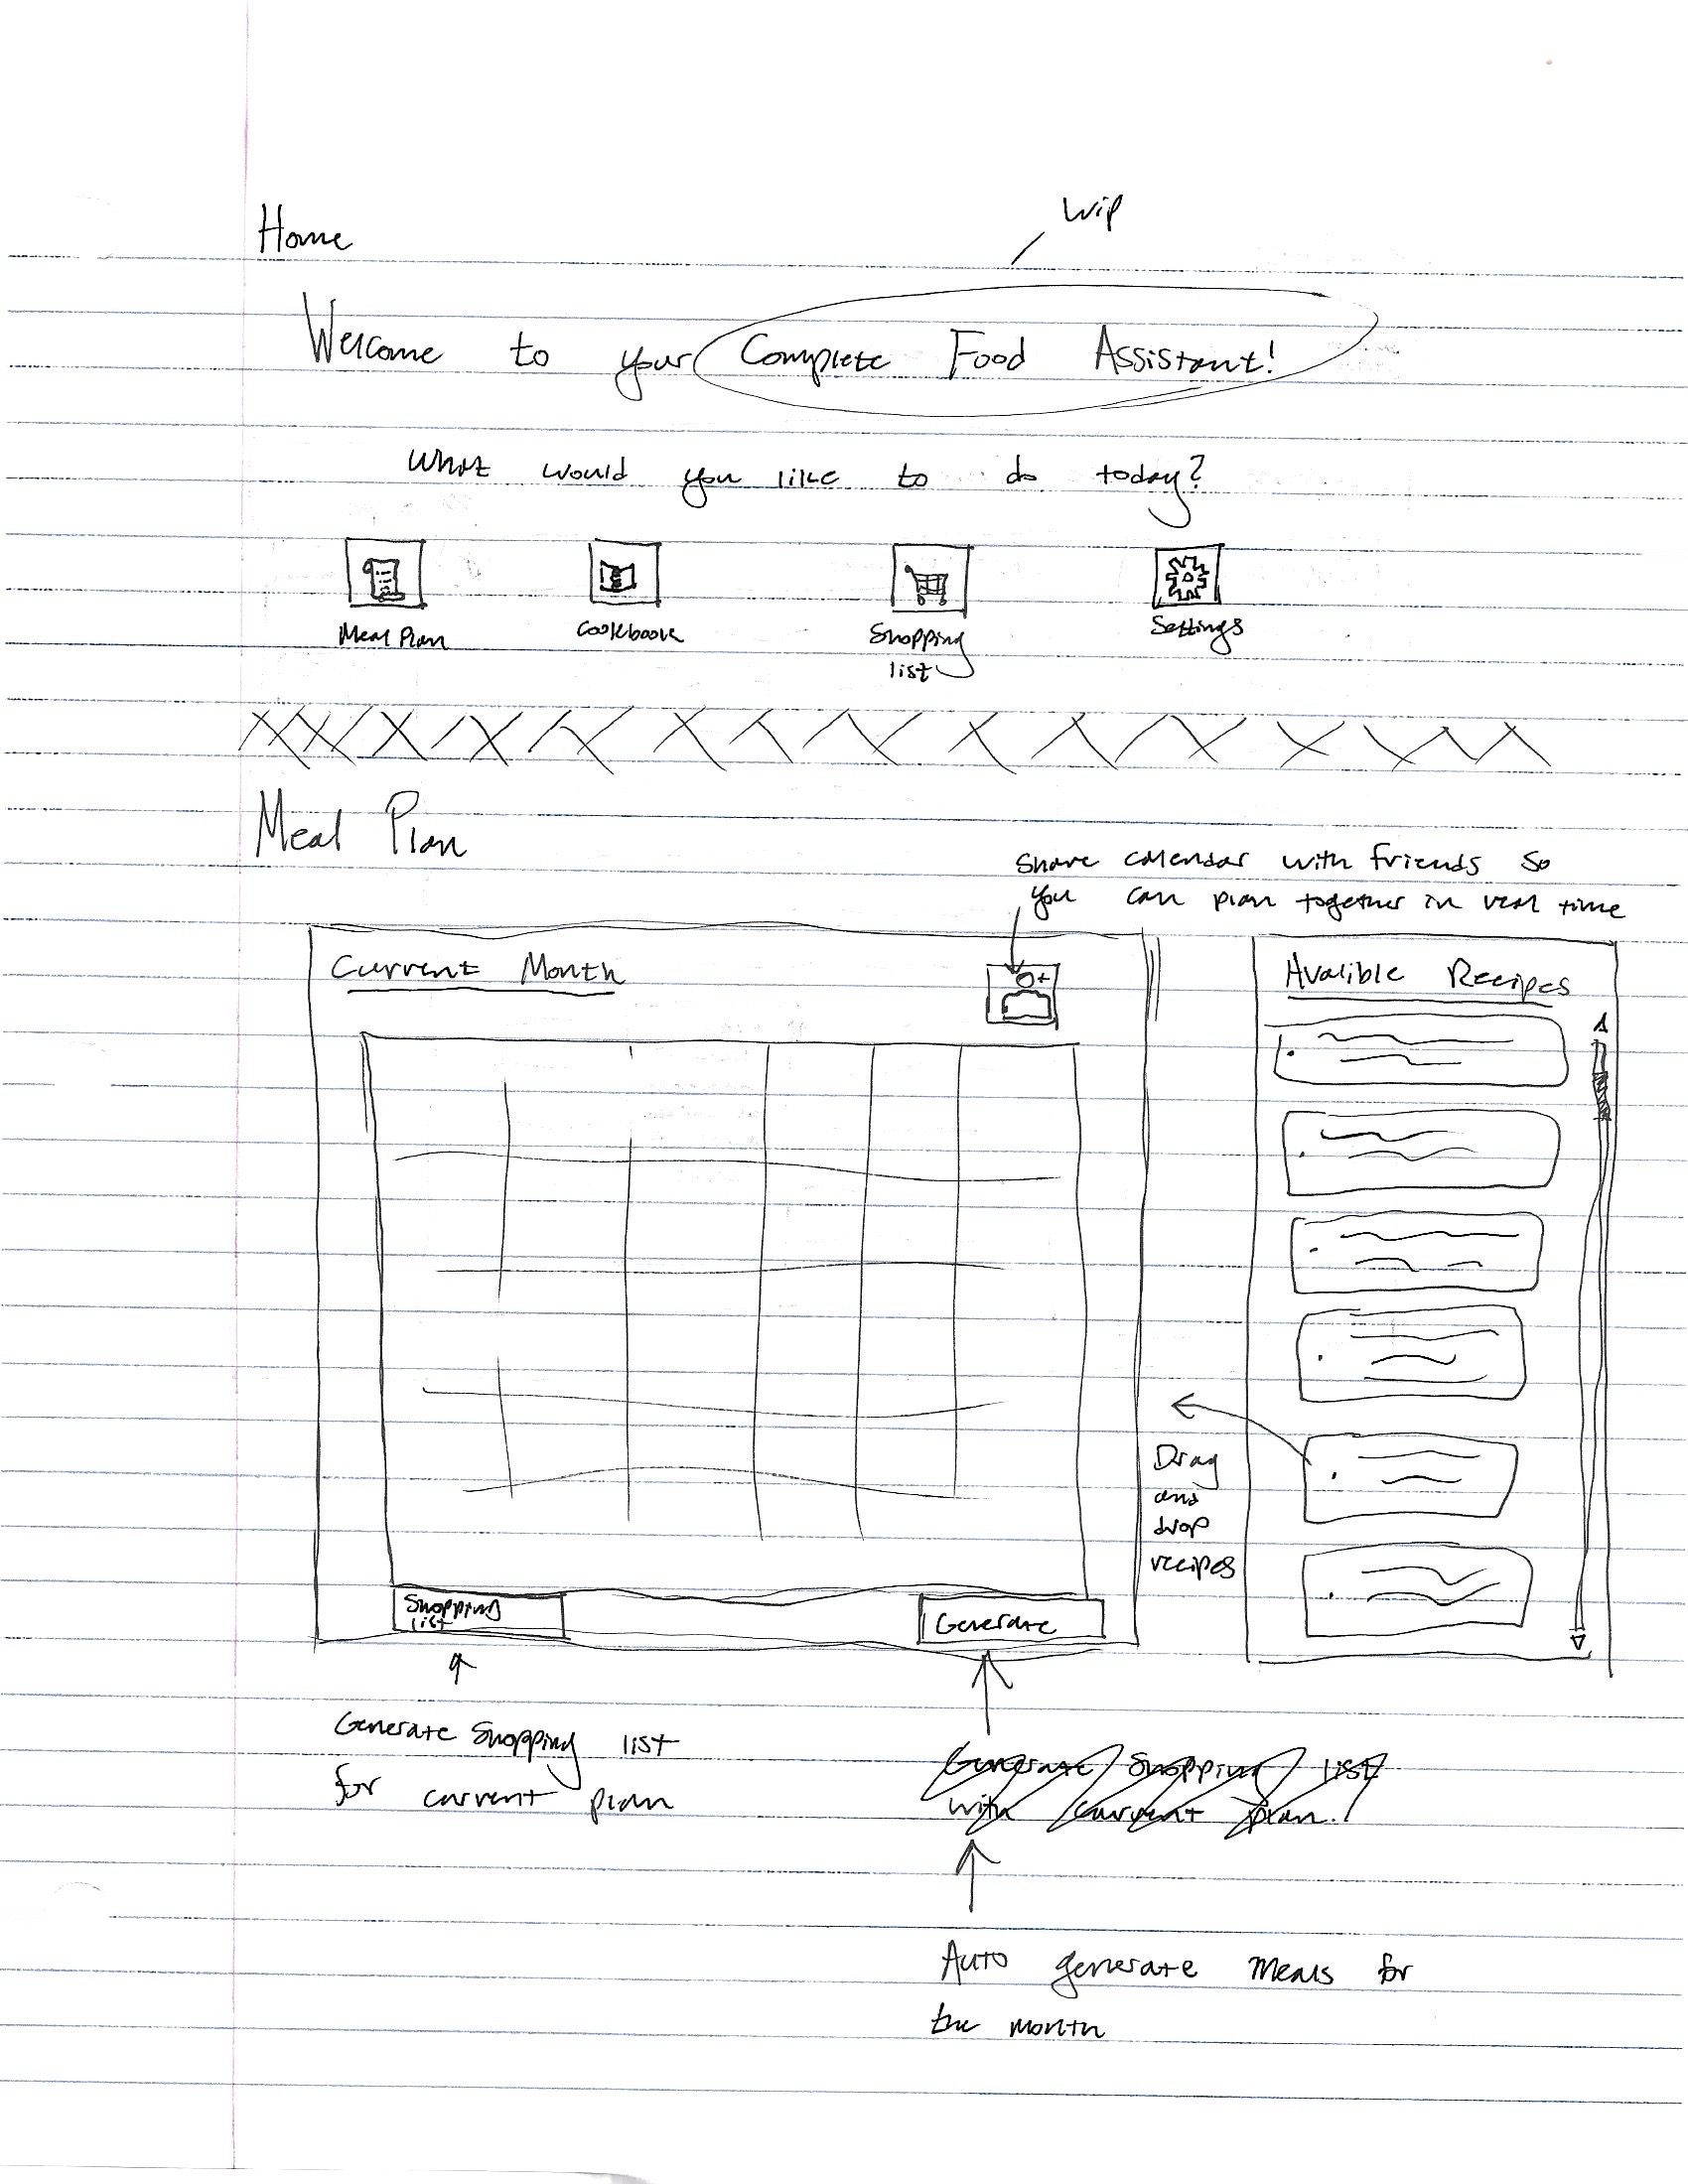 Home
wip
Welcome to your Complete Food Assistant!
What would you like to do today?
Meal Plan Cookbook Shopping Settings
list
Meal Plan
Share calendar with friends so
you can plan together in real time
Current Month
Avalible Recipes
Drag
and
drop
recipes
Shopping
list
Generate
Generate Shopping list
for current plan
Generate Shopping list
with current plan.
Auto generate meals for
the month